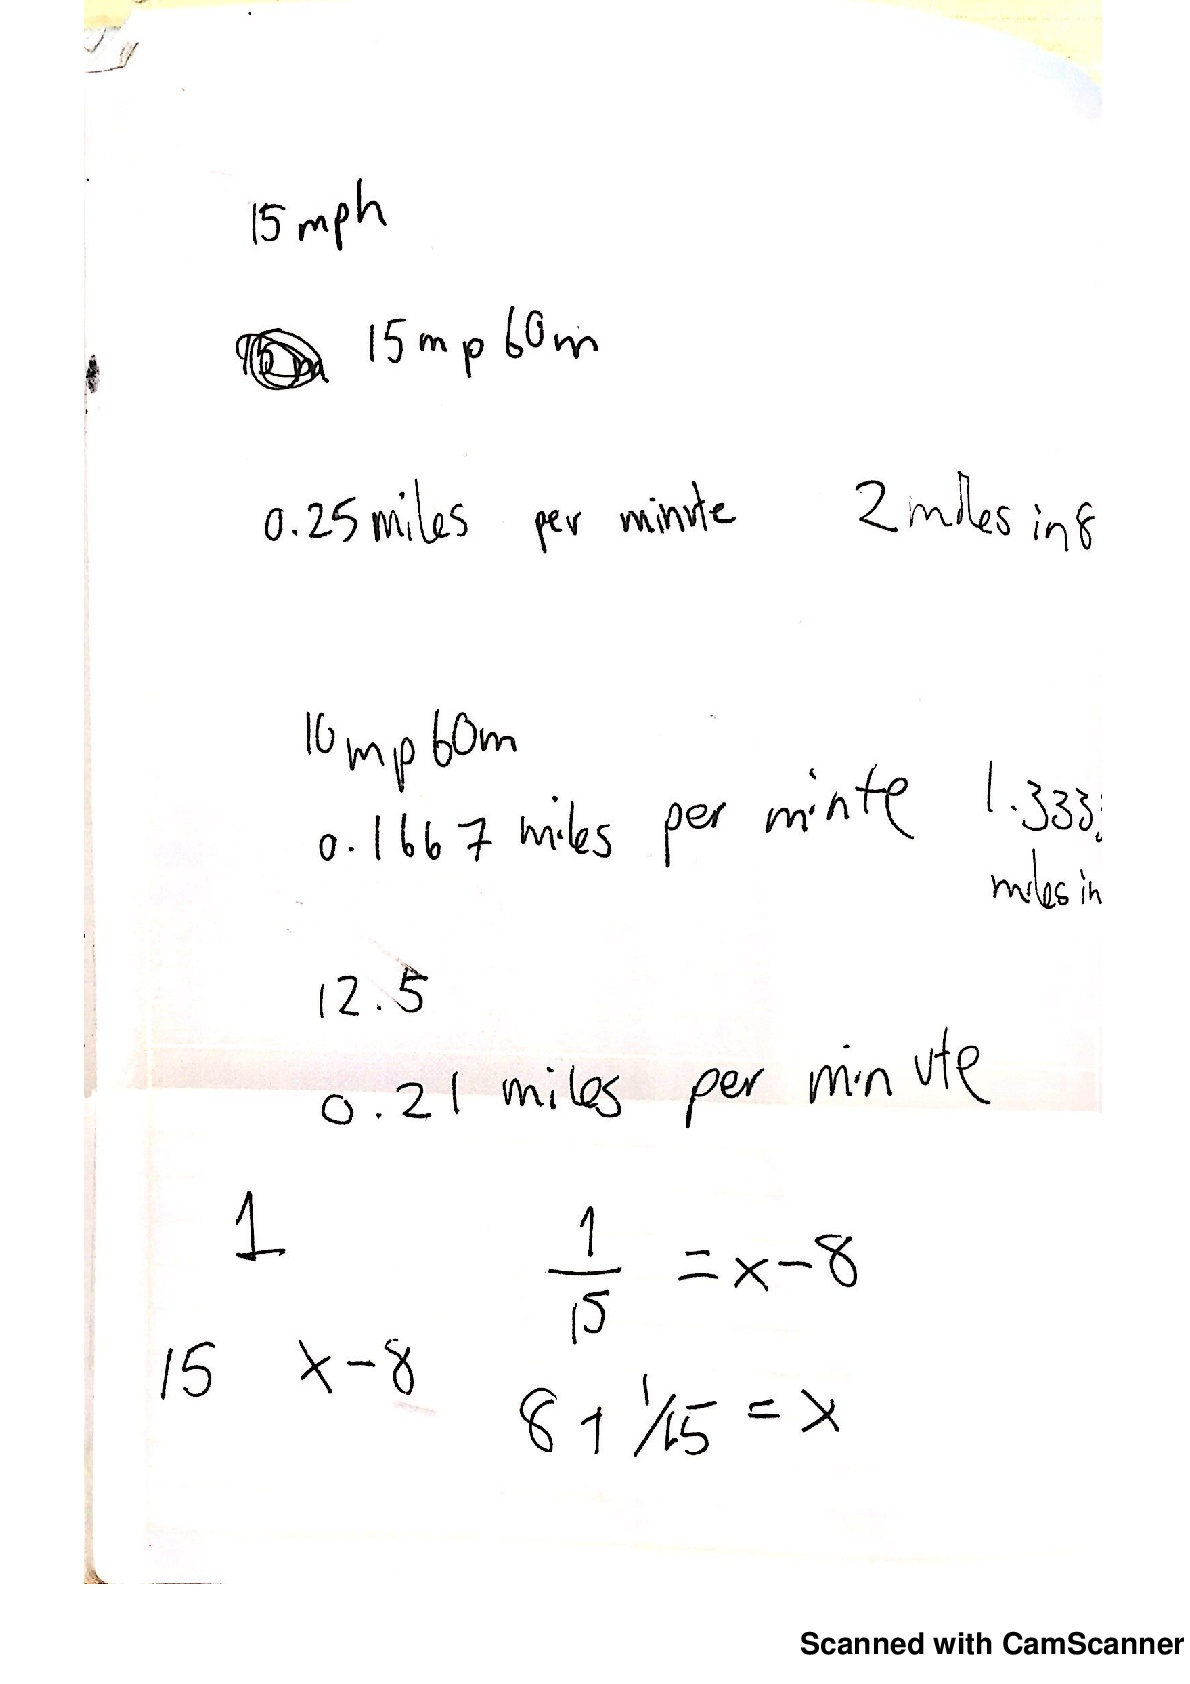 15 mph
15 mp 60m
0.25 miles per minute 2 miles in 8
10 mp 60m
0.1667 miles per minte 1.333
miles in
12.5
0.21 miles per minute
1
15 x-8
1/15 = x-8
8 + 1/15 = x
Scanned with CamScanner